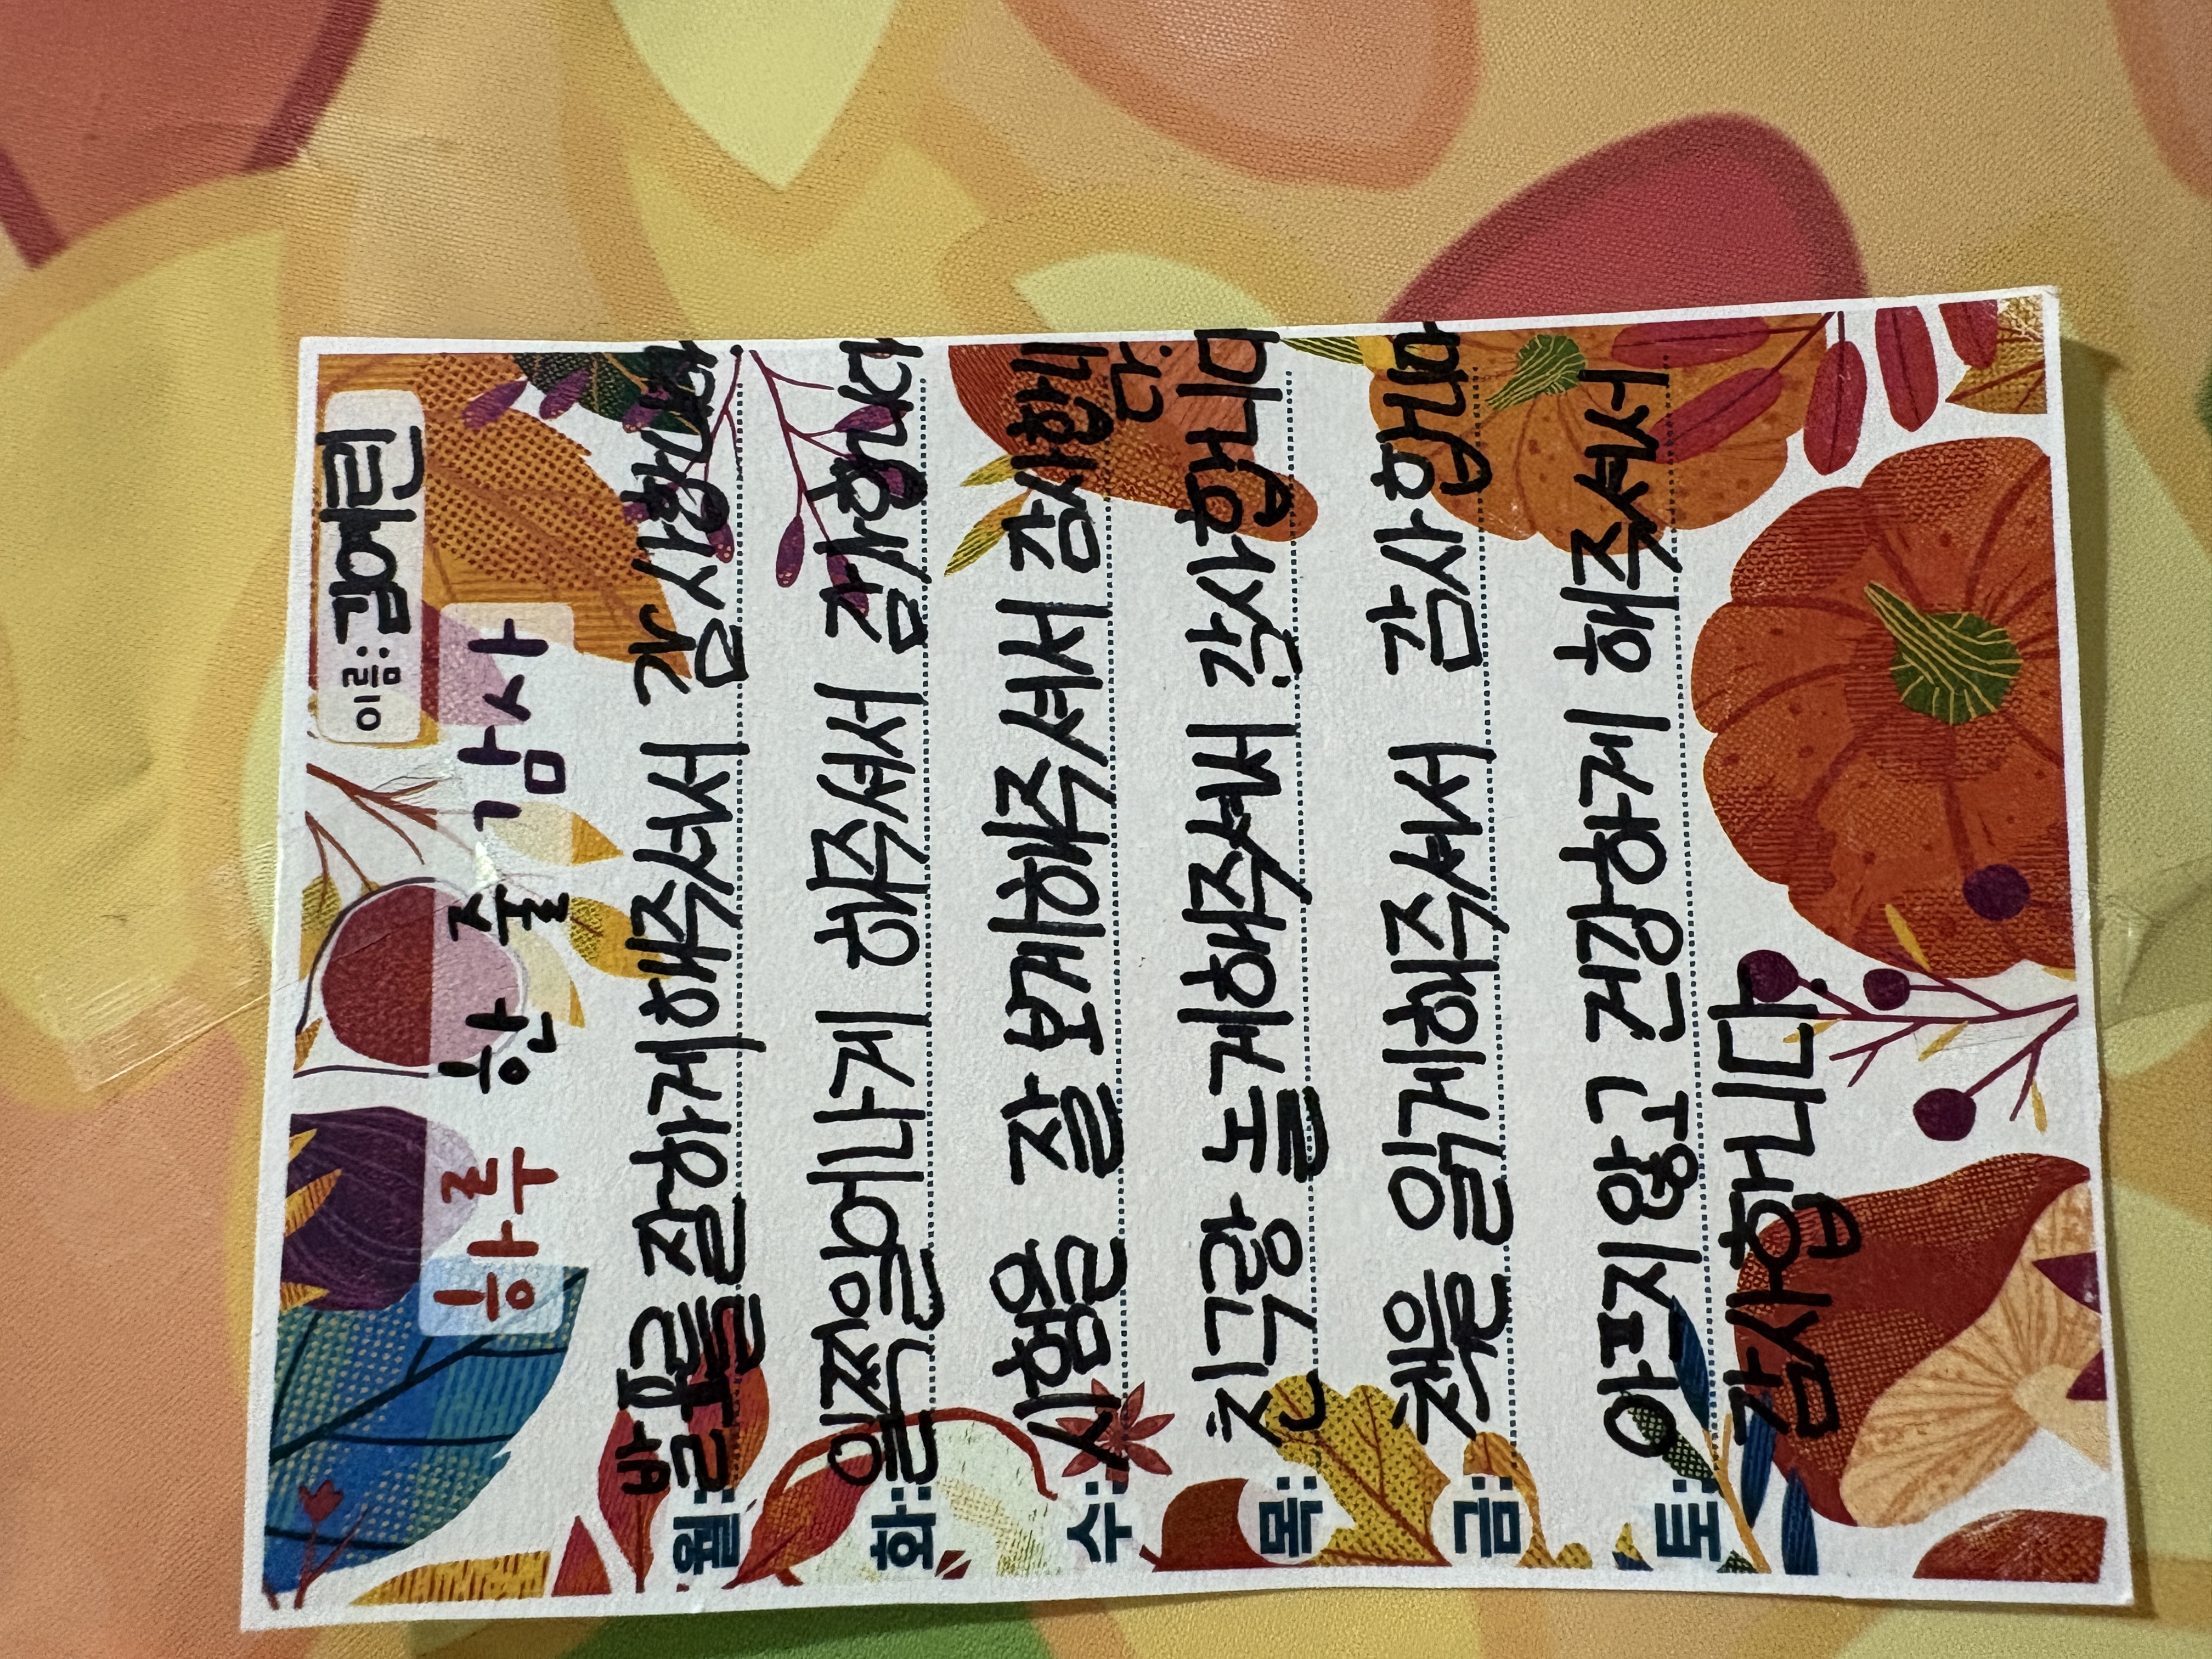 이름: 김예린
하루 한 줄 감사
월: 발표를 잘하게해주셔서 감사합니다
화: 일찍일어나게 해주셔서 감사합니다
수: 시험을 잘 보게해주셔서 감사합니다.
목: 친구랑 놀게해주셔서 감사합니다
금: 책을 읽게해주셔서 감사합니다
토: 아프지않고 건강하게 해주셔서
감사합니다.